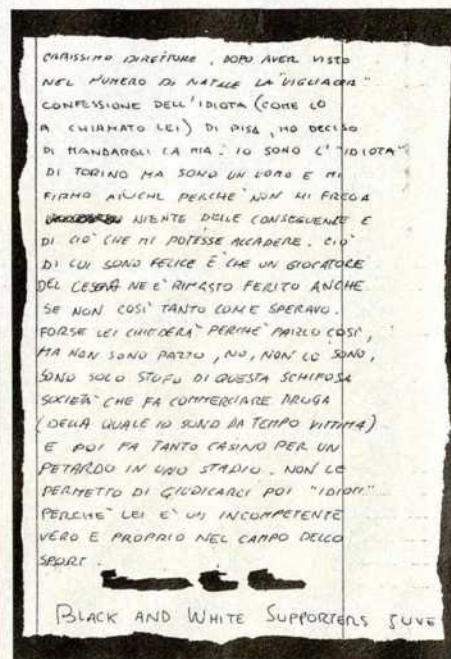 CARISSIMO DIRETTORE, DOPO AVER VISTO
NEL NUMERO DI NATALE LA "VIGLIACCA"
CONFESSIONE DELL'IDIOTA (COME LO
A CHIAMATO LEI) DI PISA, HO DECISO
DI MANDARGLI LA MIA. IO SONO L'"IDIOTA"
DI TORINO MA SONO UN UOMO E MI
FIRMO ANCHE PERCHE' NON MI FREGA
NIENTE DELLE CONSEGUENZE E
DI CIO' CHE MI POTESSE ACCADERE. CIO'
DI CUI SONO FELICE È CHE UN GIOCATORE
DEL CESENA NE E' RIMASTO FERITO ANCHE
SE NON COSI' TANTO COME SPERAVO.
FORSE LEI CHIEDERA' PERCHE' PARLO COSI',
MA NON SONO PAZZO, NO, NON LO SONO,
SONO SOLO STUFO DI QUESTA SCHIFOSA
SOCIETA' CHE FA COMMERCIARE DROGA
(DELLA QUALE IO SONO DA TEMPO VITTIMA)
E POI FA TANTO CASINO PER UN
PETARDO IN UNO STADIO. NON LE
PERMETTO DI GIUDICARCI POI "IDIOTI"
PERCHE' LEI E' UN INCOMPETENTE
VERO E PROPRIO NEL CAMPO DELLO
SPORT.
BLACK AND WHITE SUPPORTERS JUVE